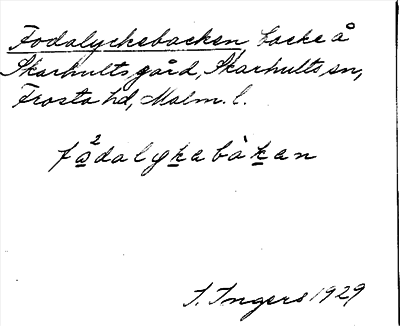 Fodalyckebacken, backe å
Skarhults gård, Skarhults sn,
Frosta hd, Malm. l.
fa²dalykabàkan
I. Ingers 1929